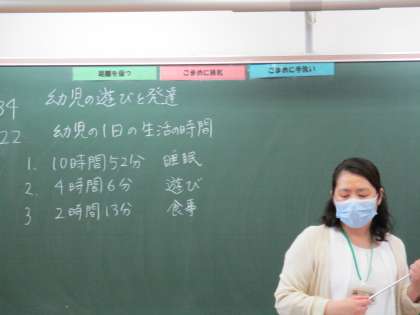 距離を保つ
こまめに換気
こまめに手洗い
34 幼児の遊びと発達
22 幼児の1日の生活の時間
1. 10時間52分 睡眠
2. 4時間6分 遊び
3 2時間13分 食事